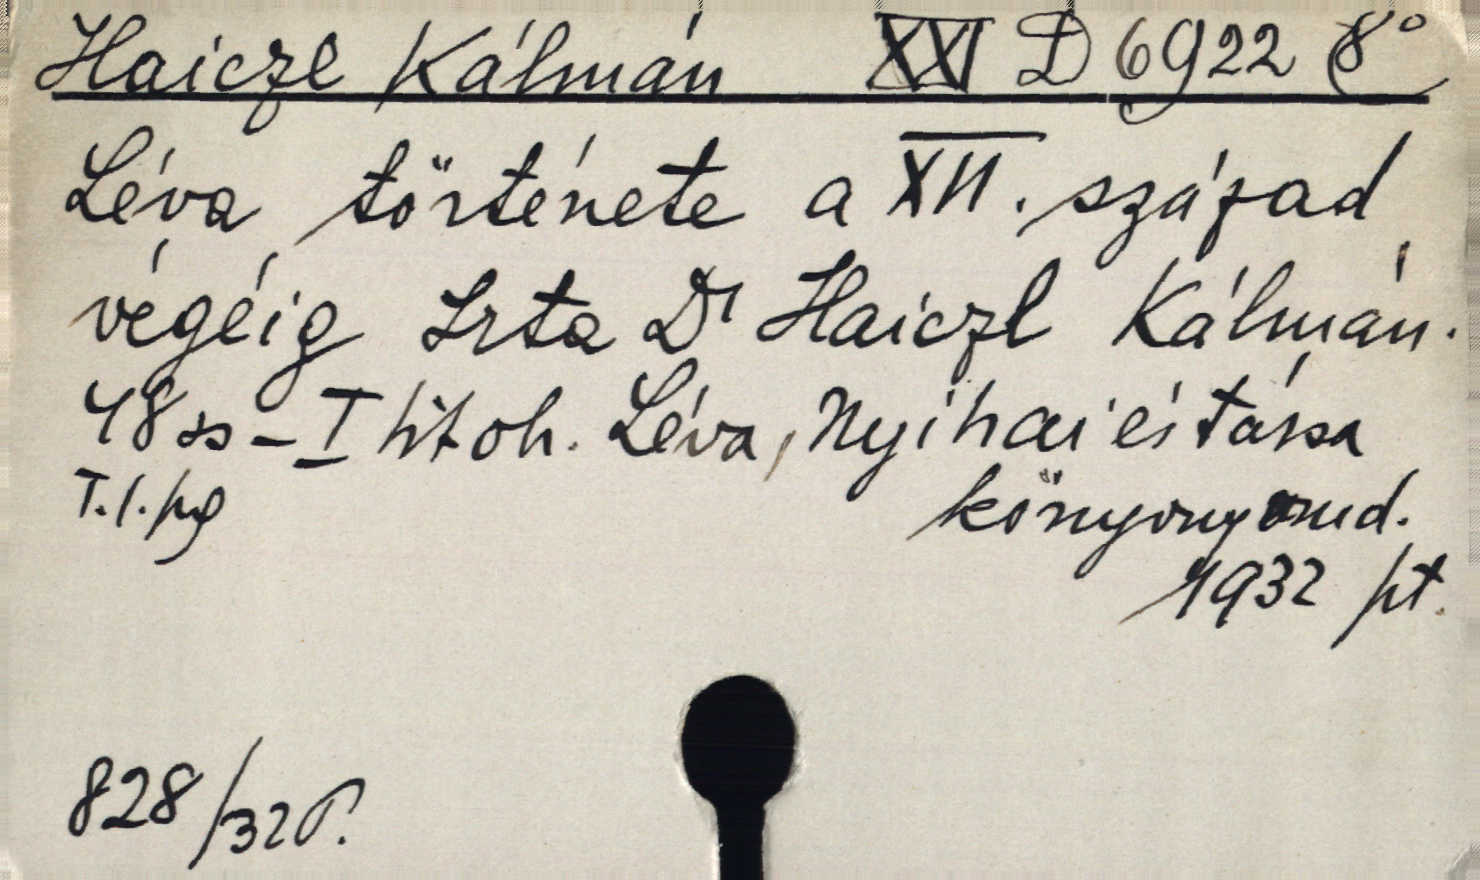 Haiczl Kálmán XXI D 6922 8°
Léva története a XII. század
végéig Irta Dr Haiczl Kálmán.
48 ss – I tit oh. Léva, Nyitrai és társa
könyvnyomd.
T.l.pg
1932 pt.
828/32 P.